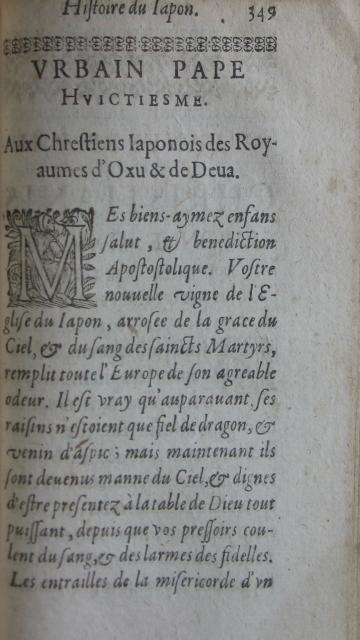 Histoire du Iapon. 349
VRBAIN PAPE
HVICTIESME.
Aux Chreſtiens Iaponois des Roy-
aumes d'Oxu & de Deua.
MEs biens-aymez enfans
ſalut, & benediction
Apoſtoſtolique. Voſtre
nouuelle vigne de l'E-
gliſe du Iapon, arroſee de la grace du
Ciel, & du ſang des ſaincts Martyrs,
remplit toute l'Europe de ſon agreable
odeur. Il eſt vray qu'auparauant, ſes
raiſins n'eſtoient que fiel de dragon, &
venin d'aſpic; mais maintenant ils
ſont deuenus manne du Ciel, & dignes
d'eſtre preſentez à la table de Dieu tout
puiſſant, depuis que vos preſſoirs cou-
lent du ſang, & des larmes des fidelles.
Les entrailles de la miſericorde d'vn